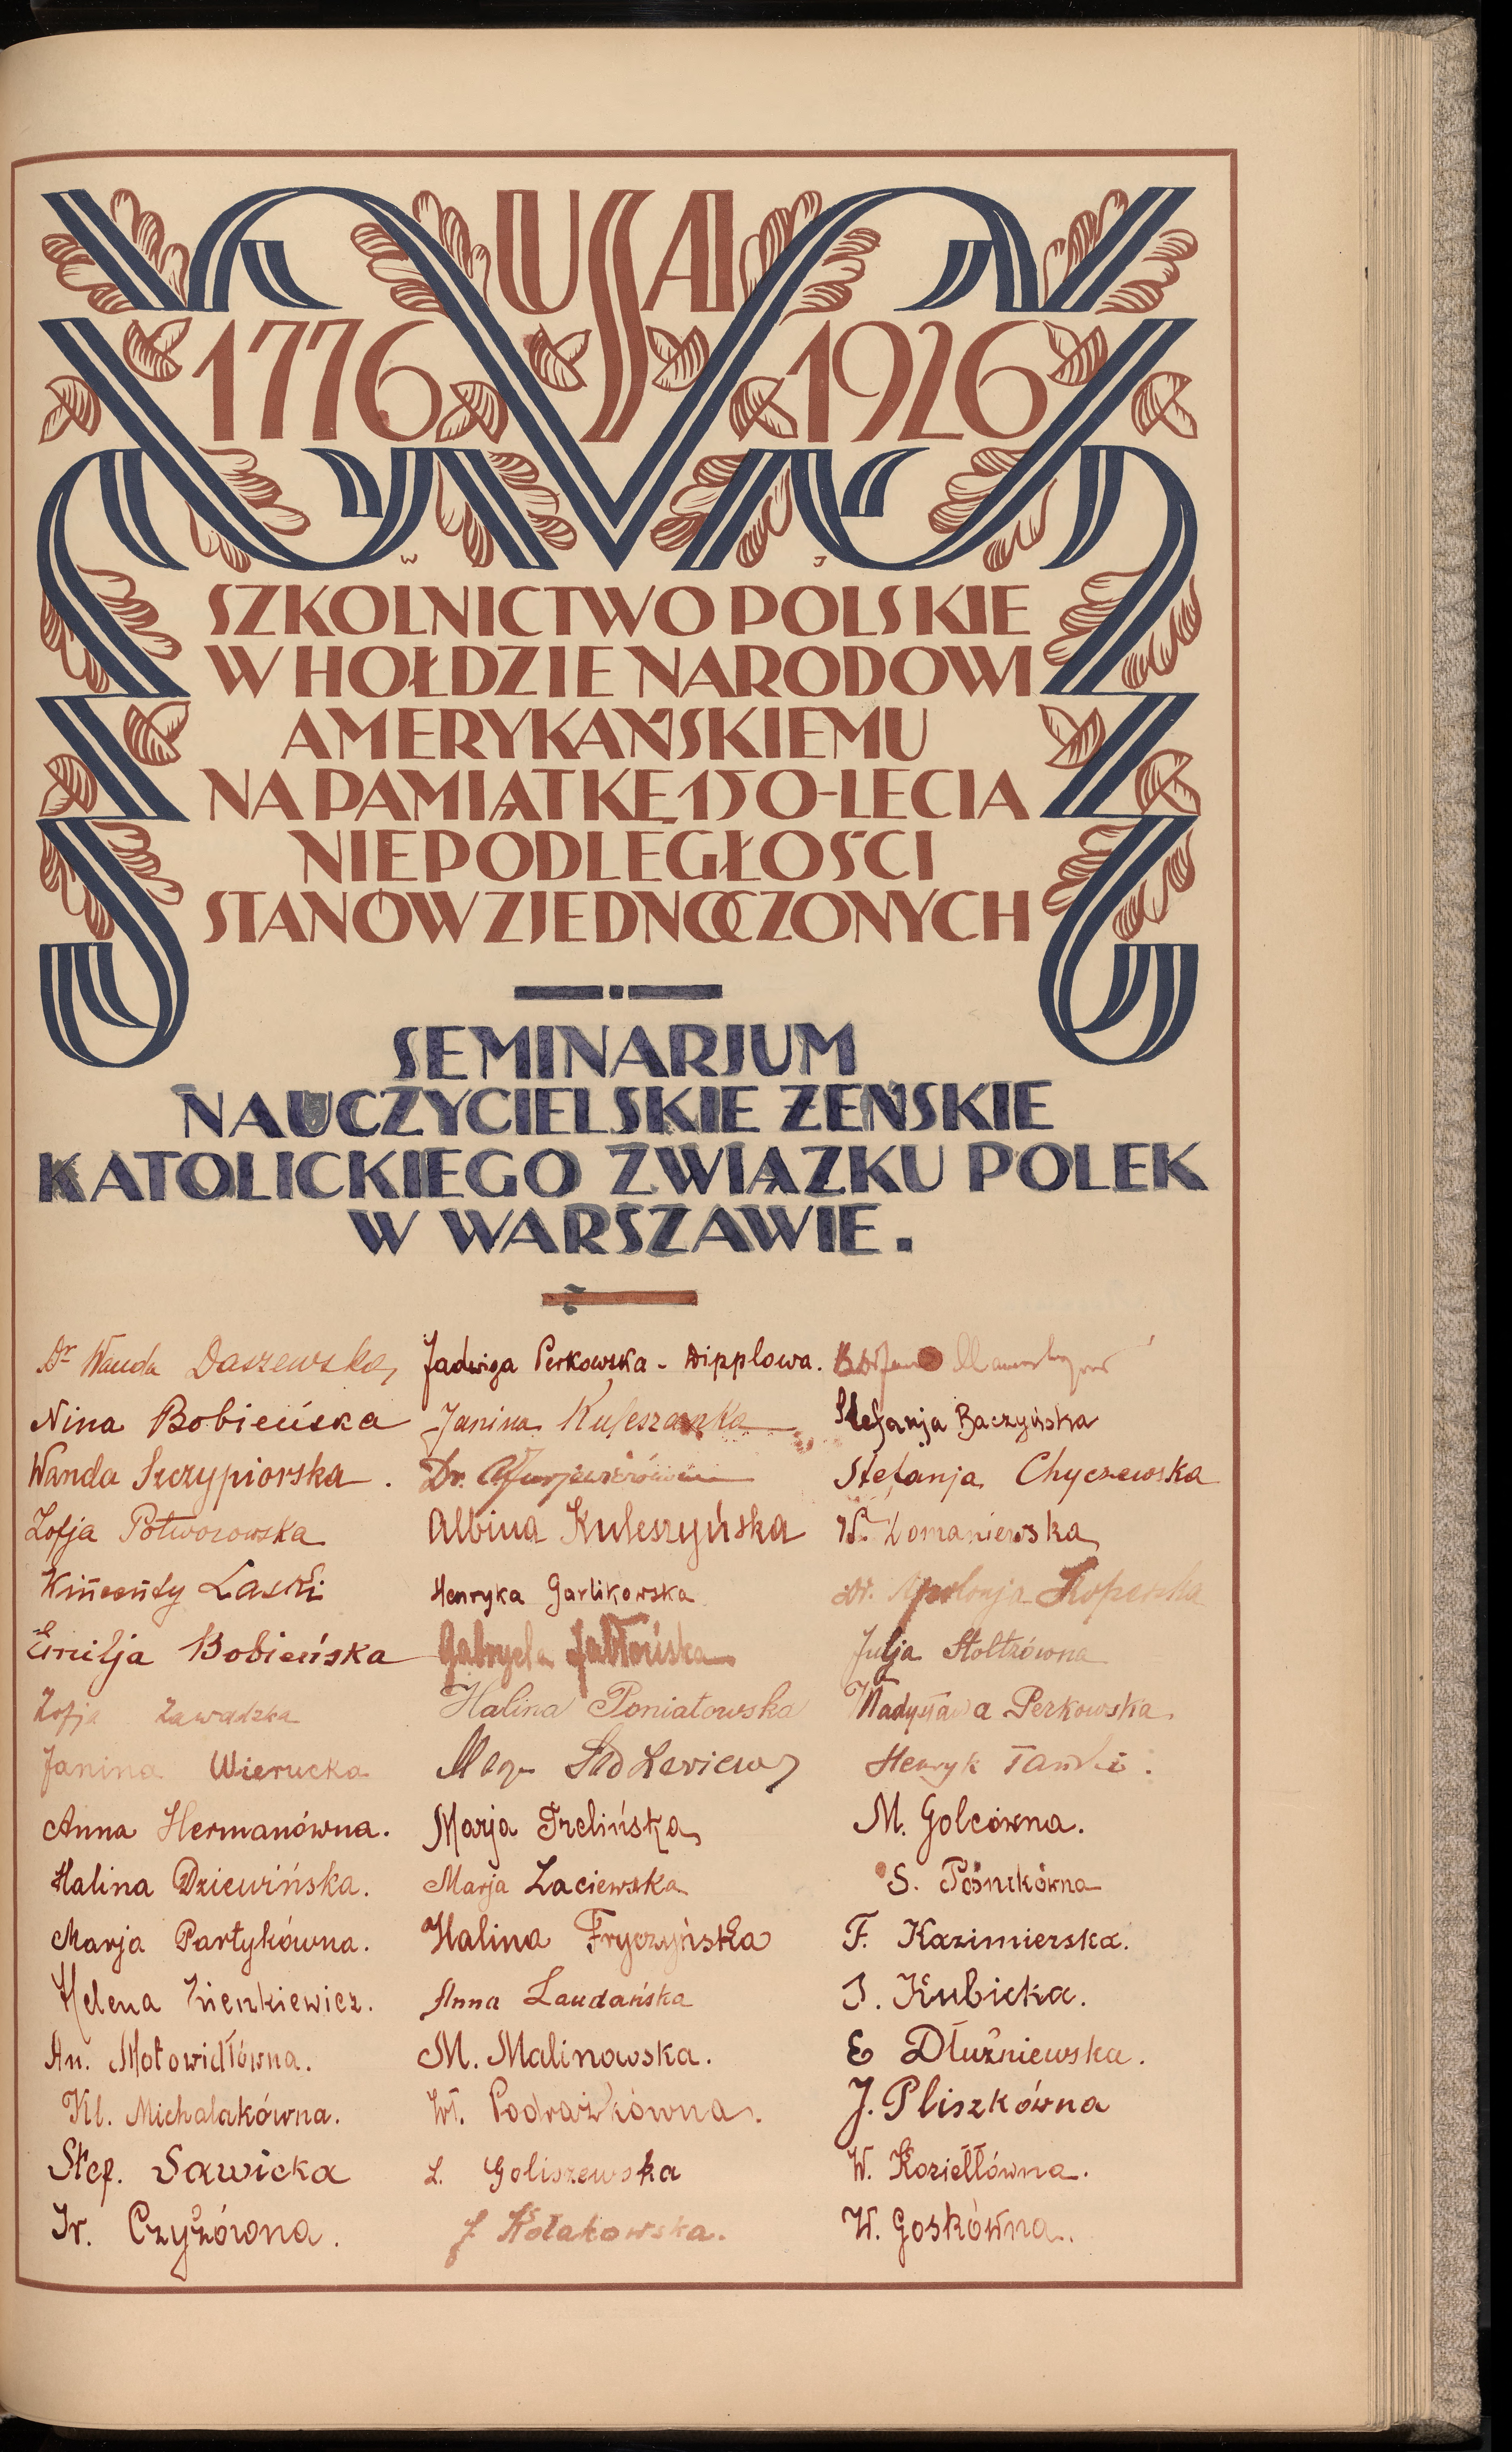 USA
1776 1926
W J
SZKOLNICTWO POLSKIE
W HOŁDZIE NARODOWI
AMERYKAŃSKIEMU
NA PAMIĄTKĘ 150-LECIA
NIEPODLEGŁOŚCI
STANÓW ZJEDNOCZONYCH
SEMINARJUM
NAUCZYCIELSKIE ŻEŃSKIE
KATOLICKIEGO ZWIĄZKU POLEK
W WARSZAWIE.
Dr Wanda Daszewska
Nina Bobieńska
Wanda Szczypiorska.
Zofja Potworowska
Wincenty Laski
Emilja Bobieńska
Zofja Zawadzka
Janina Wierucka
Anna Hermanówna.
Halina Dziewińska.
Marja Partykówna.
Helena Zienkiewicz.
An. Motowidłówna.
Kl. Michalakówna.
Stef. Sawicka
Ir. Czyżówna.
Jadwiga Perkowska - Dipplowa.
Janina Kuleszanka
Dr.
Albina Kuleszyńska
Henryka Garlikowska
Gabryela Jabłońska
Halina Poniatowska
Marja Trelińska
Marja Łaciewska
Halina Fryczyńska
Anna Laudańska
M. Malinowska.
Wł. Podrażkówna.
L. Goliszewska
J Kołakowska.
Stefanja Baczyńska
Stefanja Chyczewska
W. Domaniewska
Dr. Apolonja Koperska
Julja Stoltzówna
Władysława Perkowska.
Henryk
M. Golcówna.
S. Pośnikówna
F. Kazimierska.
J. Kubicka.
E Dłużniewska.
J. Pliszkówna
W. Koziełłówna.
W. Goskówna.